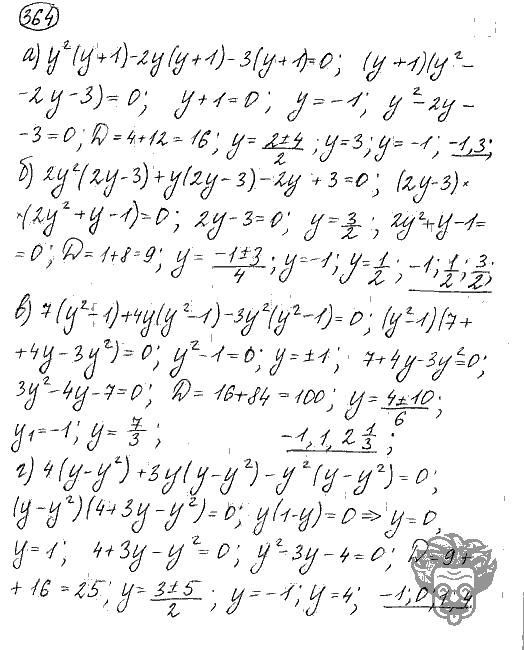 364
а) y²(y+1)-2y(y+1)-3(y+1)=0; (y+1)(y²-
-2y-3)=0; y+1=0; y=-1; y²-2y-
-3=0; D=4+12=16; y=(2±4)/2; y=3; y=-1; -1,3;
б) 2y²(2y-3)+y(2y-3)-2y+3=0; (2y-3)×
×(2y²+y-1)=0; 2y-3=0; y=3/2; 2y²+y-1=
=0; D=1+8=9; y=(-1±3)/4; y=-1; y=1/2; -1; 1/2; 3/2;
в) 7(y²-1)+4y(y²-1)-3y²(y²-1)=0; (y²-1)(7+
+4y-3y²)=0; y²-1=0; y=±1; 7+4y-3y²=0;
3y²-4y-7=0; D=16+84=100; y=(4±10)/6;
y₁=-1; y=7/3; -1, 1, 2 1/3;
г) 4(y-y²)+3y(y-y²)-y²(y-y²)=0;
(y-y²)(4+3y-y²)=0; y(1-y)=0 ⇒ y=0,
y=1; 4+3y-y²=0; y²-3y-4=0; D=9+
+16=25; y=(3±5)/2; y=-1; y=4; -1; 0, 1, 4